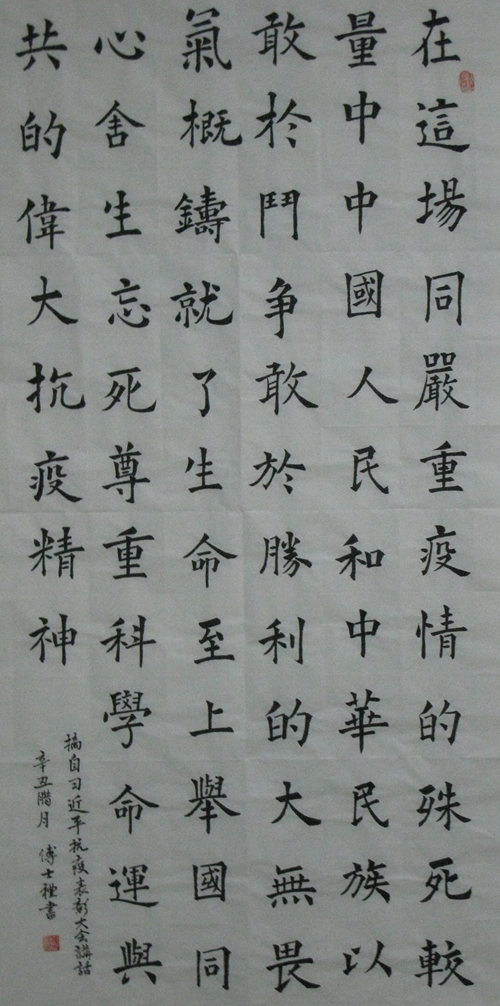 在這場同嚴重疫情的殊死較
量中中國人民和中華民族以
敢於鬥争敢於勝利的大無畏
氣概鑄就了生命至上舉國同
心舍生忘死尊重科學命運與
共的偉大抗疫精神
摘自习近平抗疫表彰大会講話
辛丑腊月 傅士種書